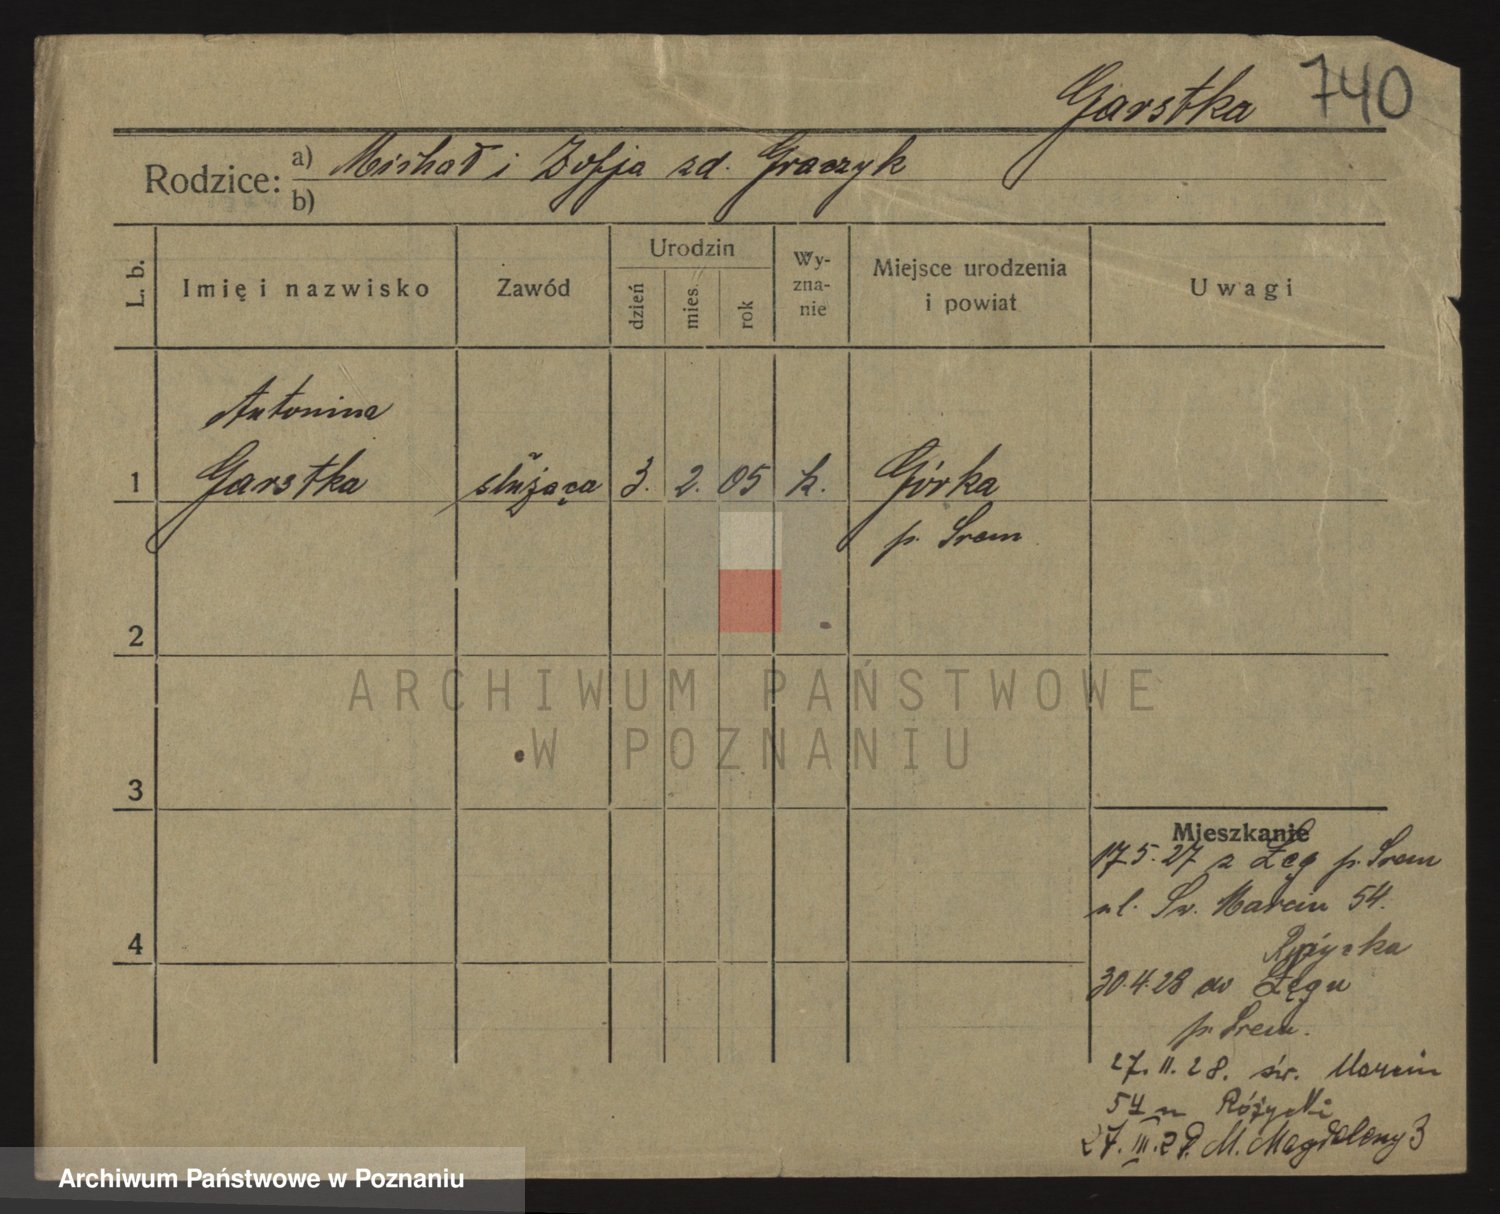 Garstka 740
Rodzice: a) Michał i Zofja zd. Graczyk
b)
L. b.
Imię i nazwisko
Zawód
Urodzin
dzień
mies.
rok
Wy-
zna-
nie
Miejsce urodzenia
i powiat
Uwagi
Antonina
1 Garstka służąca 3. 2. 05 k. Górka
p. Śrem
2
3
4
ARCHIWUM PAŃSTWOWE
W POZNANIU
Mieszkanie
17.5.27 z Łęg p. Śrem
ul. Św. Marcin 54.
Różycka
30.4.28 do Łęgu
p. Śrem.
27.II.28. św. Marcin
54 u Różycki
27.III.29. M. Magdaleny 3
Archiwum Państwowe w Poznaniu